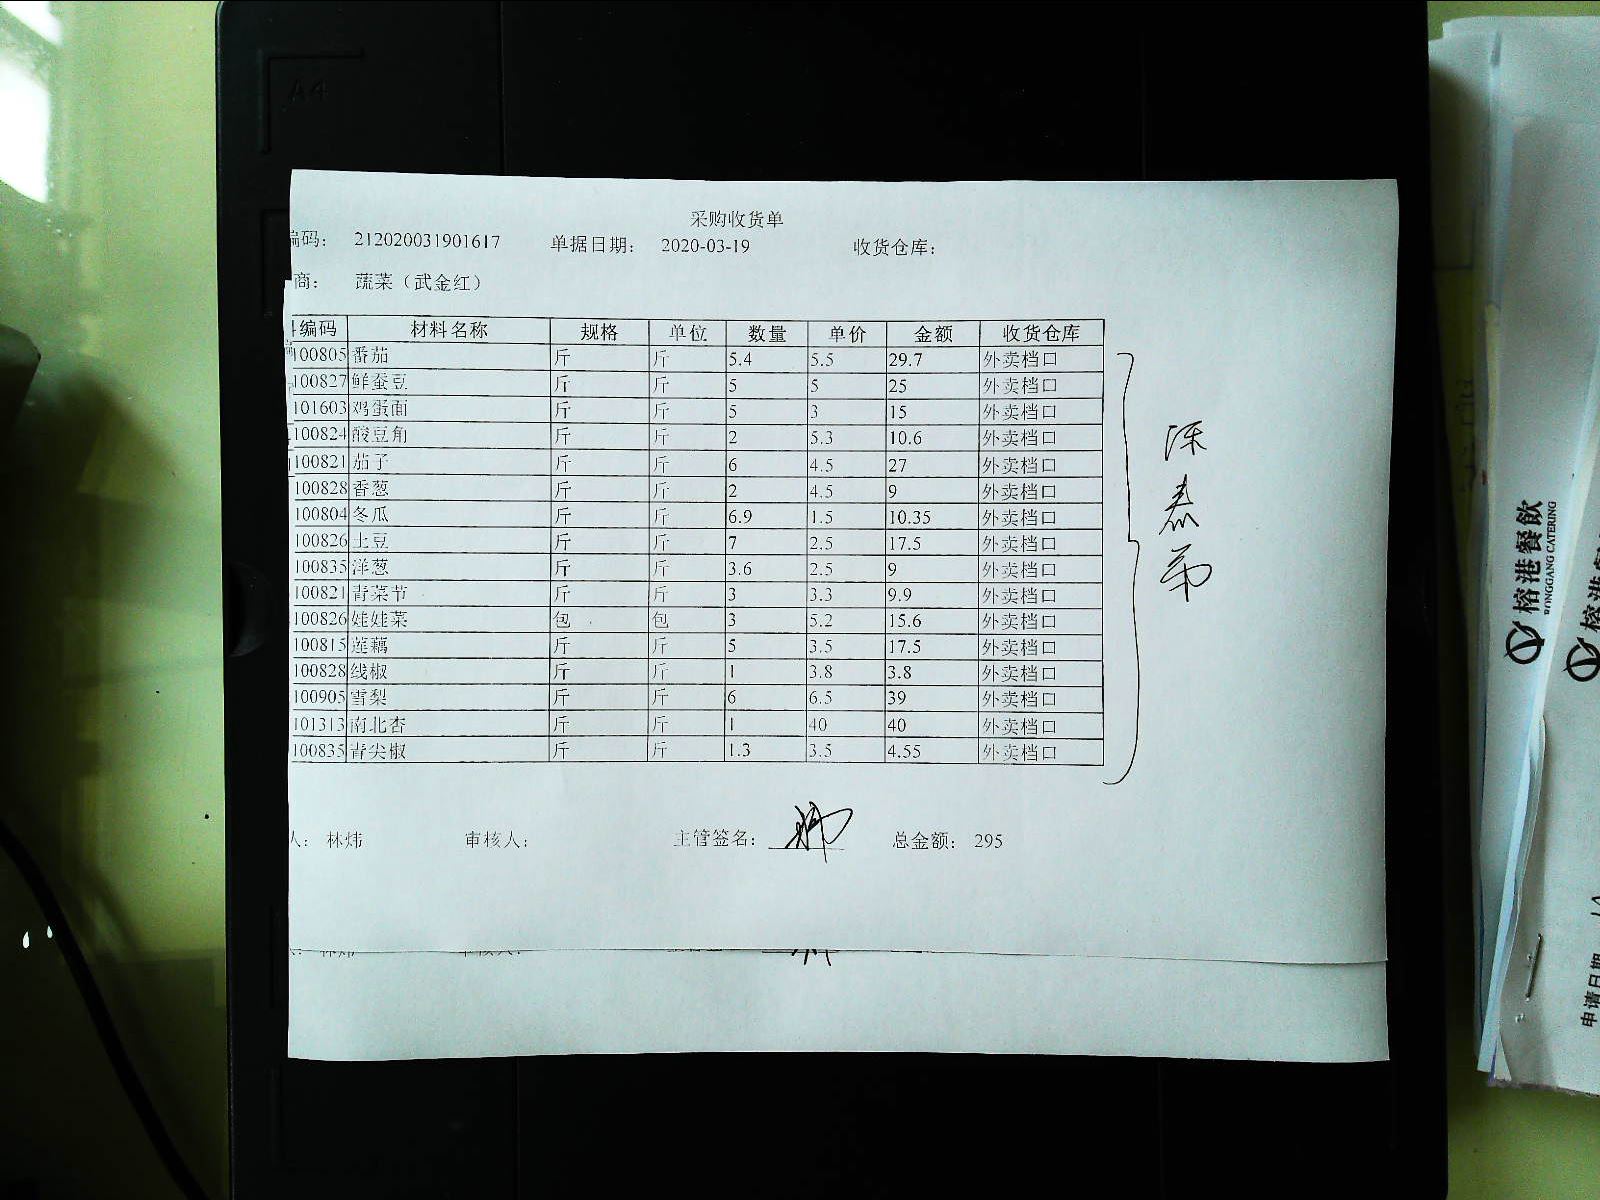 A4
采购收货单
编码: 212020031901617 单据日期: 2020-03-19 收货仓库:
商: 蔬菜（武金红）
编码 材料名称 规格 单位 数量 单价 金额 收货仓库
100805 番茄 斤 斤 5.4 5.5 29.7 外卖档口
100827 鲜蚕豆 斤 斤 5 5 25 外卖档口
101603 鸡蛋面 斤 斤 5 3 15 外卖档口
100824 酸豆角 斤 斤 2 5.3 10.6 外卖档口
100821 茄子 斤 斤 6 4.5 27 外卖档口
100828 香葱 斤 斤 2 4.5 9 外卖档口
100804 冬瓜 斤 斤 6.9 1.5 10.35 外卖档口
100826 土豆 斤 斤 7 2.5 17.5 外卖档口
100835 洋葱 斤 斤 3.6 2.5 9 外卖档口
100821 青菜节 斤 斤 3 3.3 9.9 外卖档口
100826 娃娃菜 包 包 3 5.2 15.6 外卖档口
100815 莲藕 斤 斤 5 3.5 17.5 外卖档口
100828 线椒 斤 斤 1 3.8 3.8 外卖档口
100905 雪梨 斤 斤 6 6.5 39 外卖档口
101313 南北杏 斤 斤 1 40 40 外卖档口
100835 青尖椒 斤 斤 1.3 3.5 4.55 外卖档口
人: 林炜 审核人: 主管签名: 总金额: 295
榕港餐飲
RONGGANG CATERING
榕港
申请日期